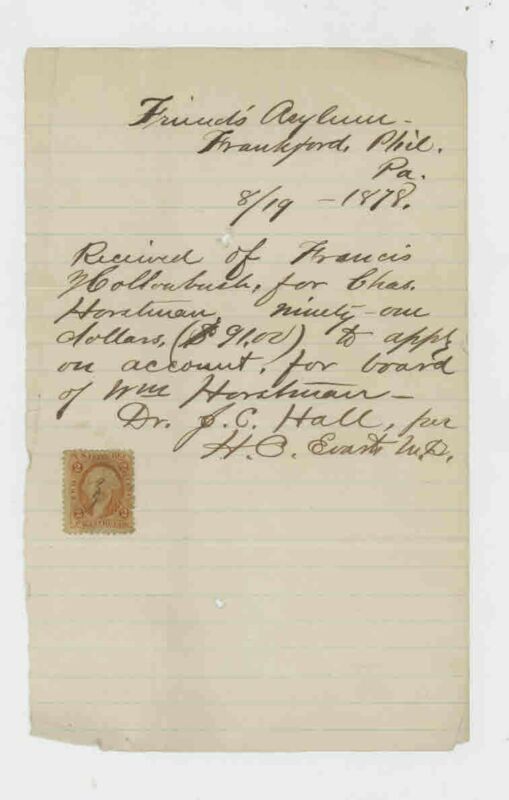 Friends' Asylum -
Frankford, Phil.
Pa.
8/19 - 1878.
Received of Francis
Hollonbush, for Chas.
Horstman, ninety-one
dollars, ($91.00) to apply
on account, for board
of Wm Horstman -
Dr. J. C. Hall, per
H. C. Evarts M.D.
2 2
2 2